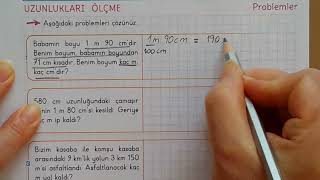 UZUNLUKLARI ÖLÇME
Problemler
Aşağıdaki problemleri çözünüz.
Babamın boyu 1 m 90 cm'dir.
Benim boyum, babamın boyundan
71 cm kısadır. Benim boyum kaç m
kaç cm'dir?
1m 90cm = 190
100 cm
580 cm uzunluğundaki çamaşır
ipinin 1 m 80 cm'si kesildi. Geriye
kaç m ip kaldı?
Bizim kasaba ile komşu kasaba
arasındaki 9 km'lik yolun 3 km 150
m'si asfaltlandı. Asfaltlanacak kaç
m yol kaldı?